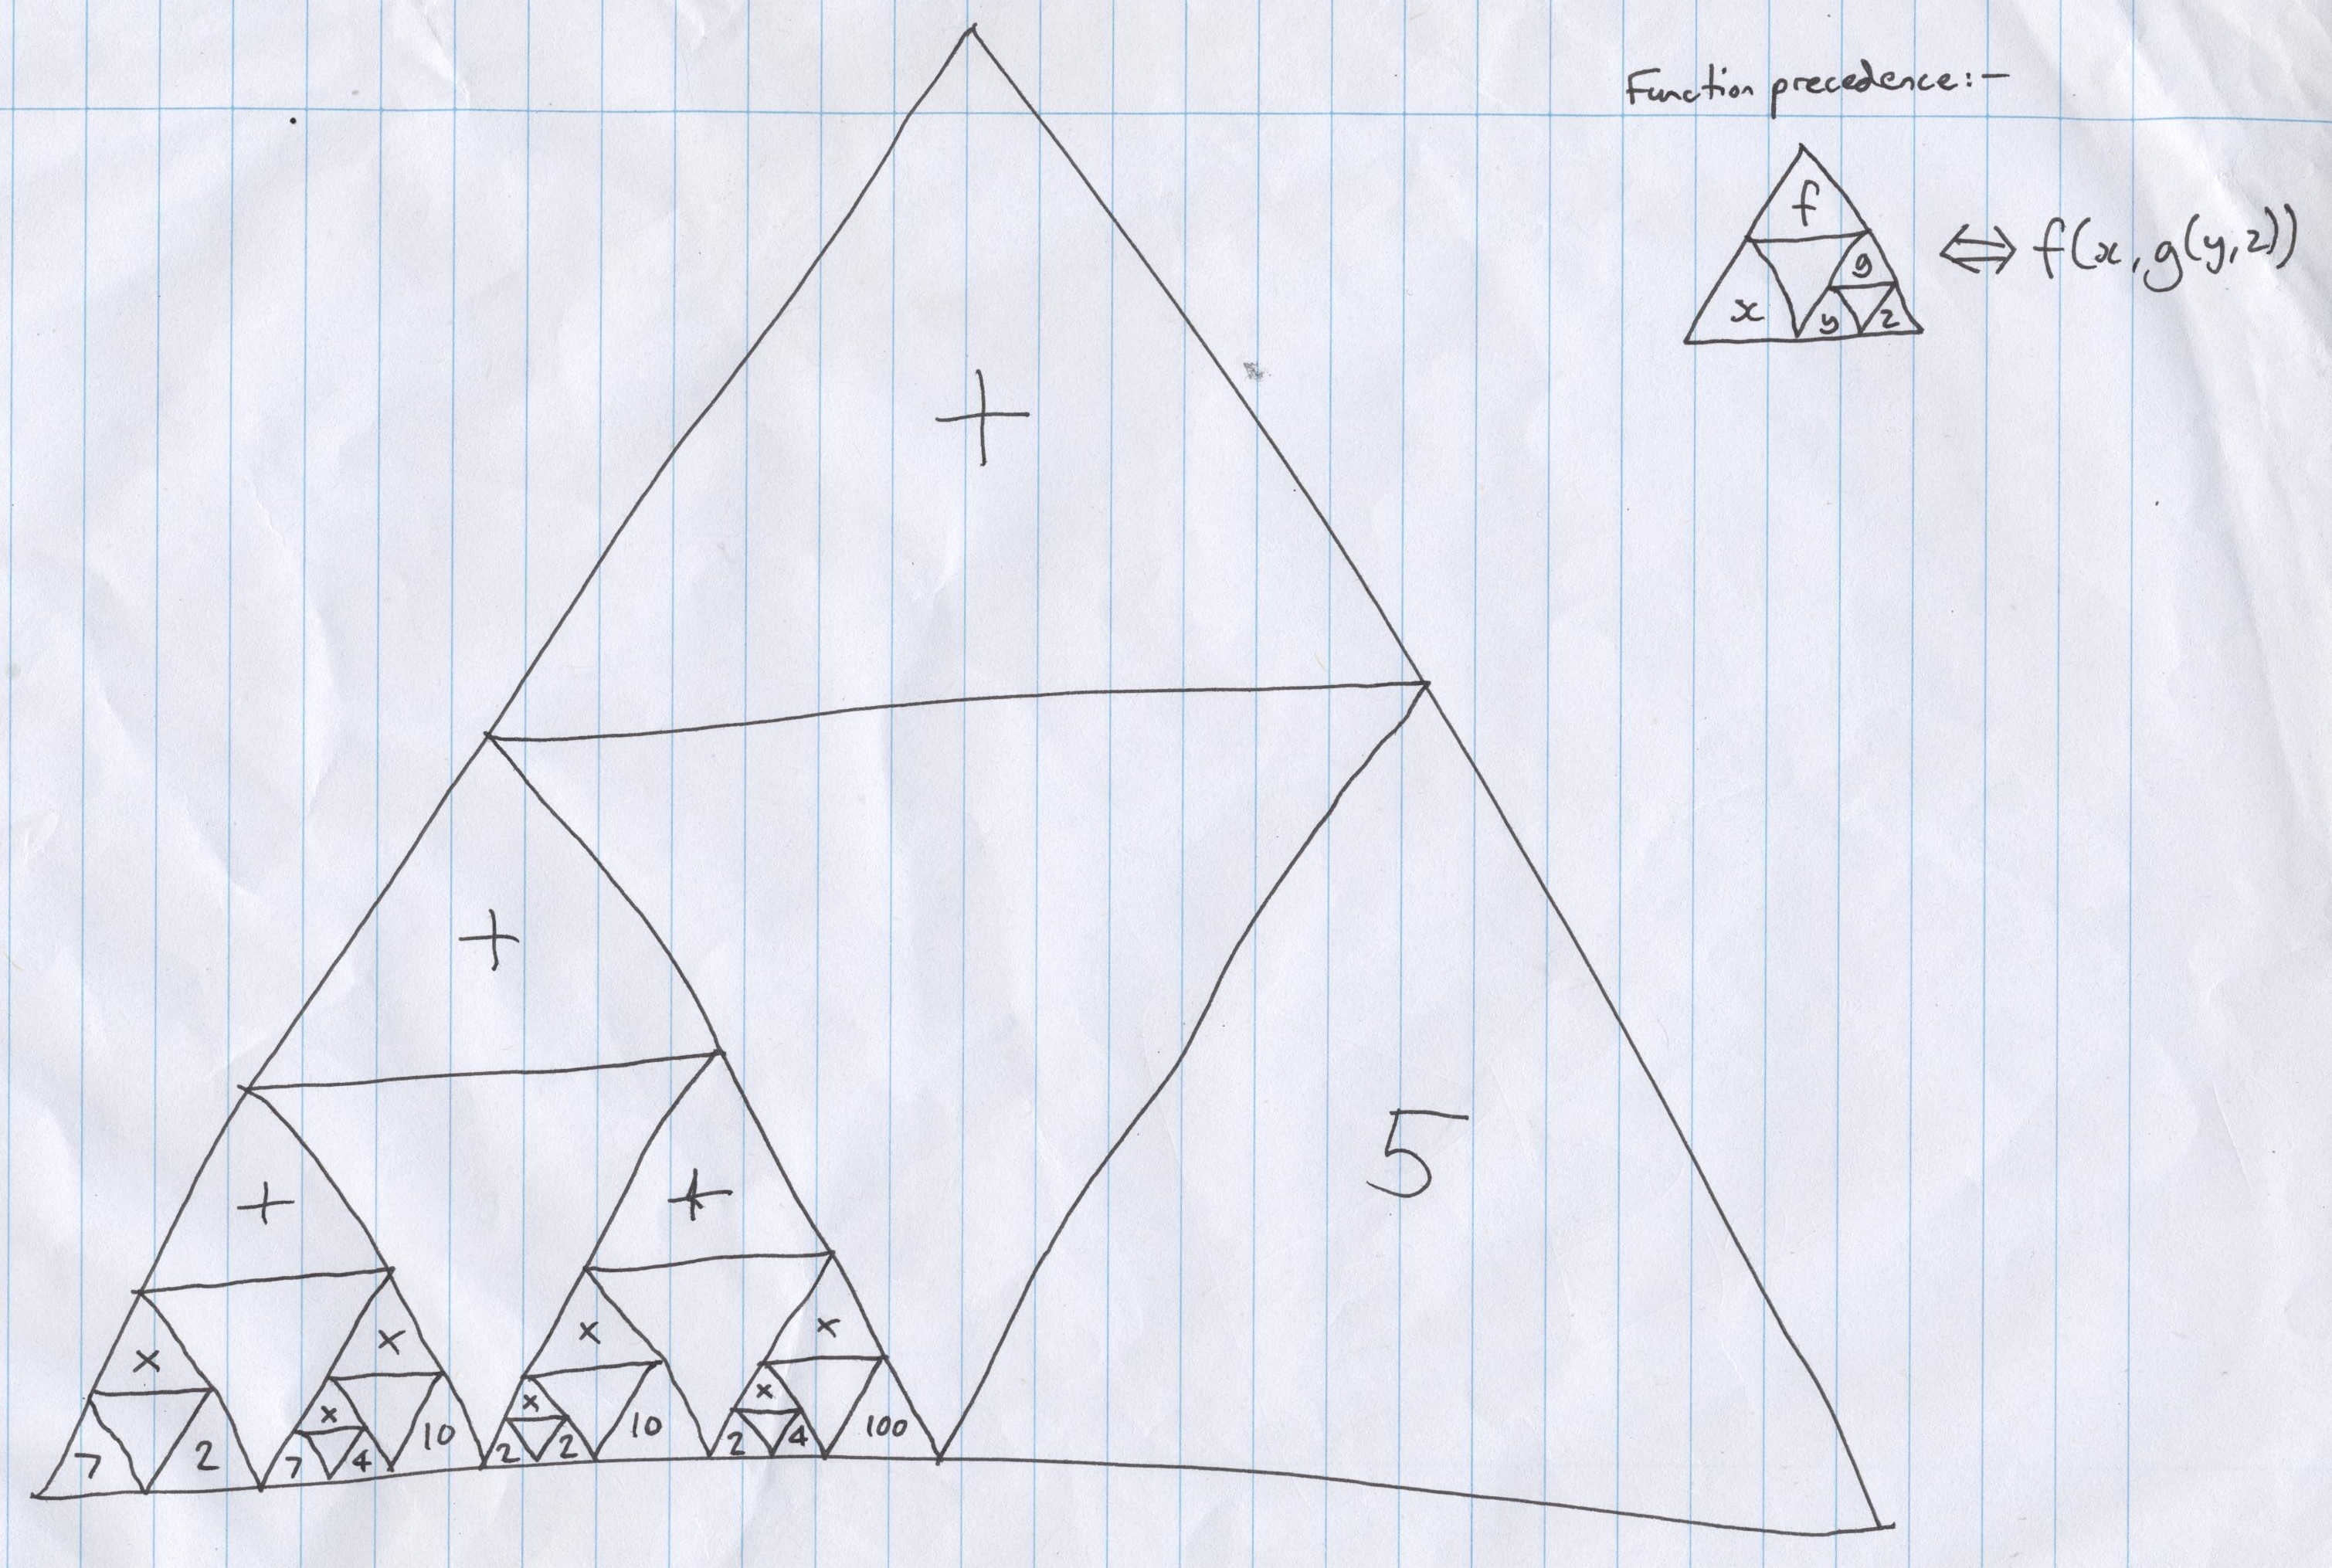 Function precedence:-
f
g
x
y
z
⇔ f(x, g(y,z))
+
+
5
+
+
×
×
×
×
×
×
×
7
2
7
4
10
2
2
10
2
4
100